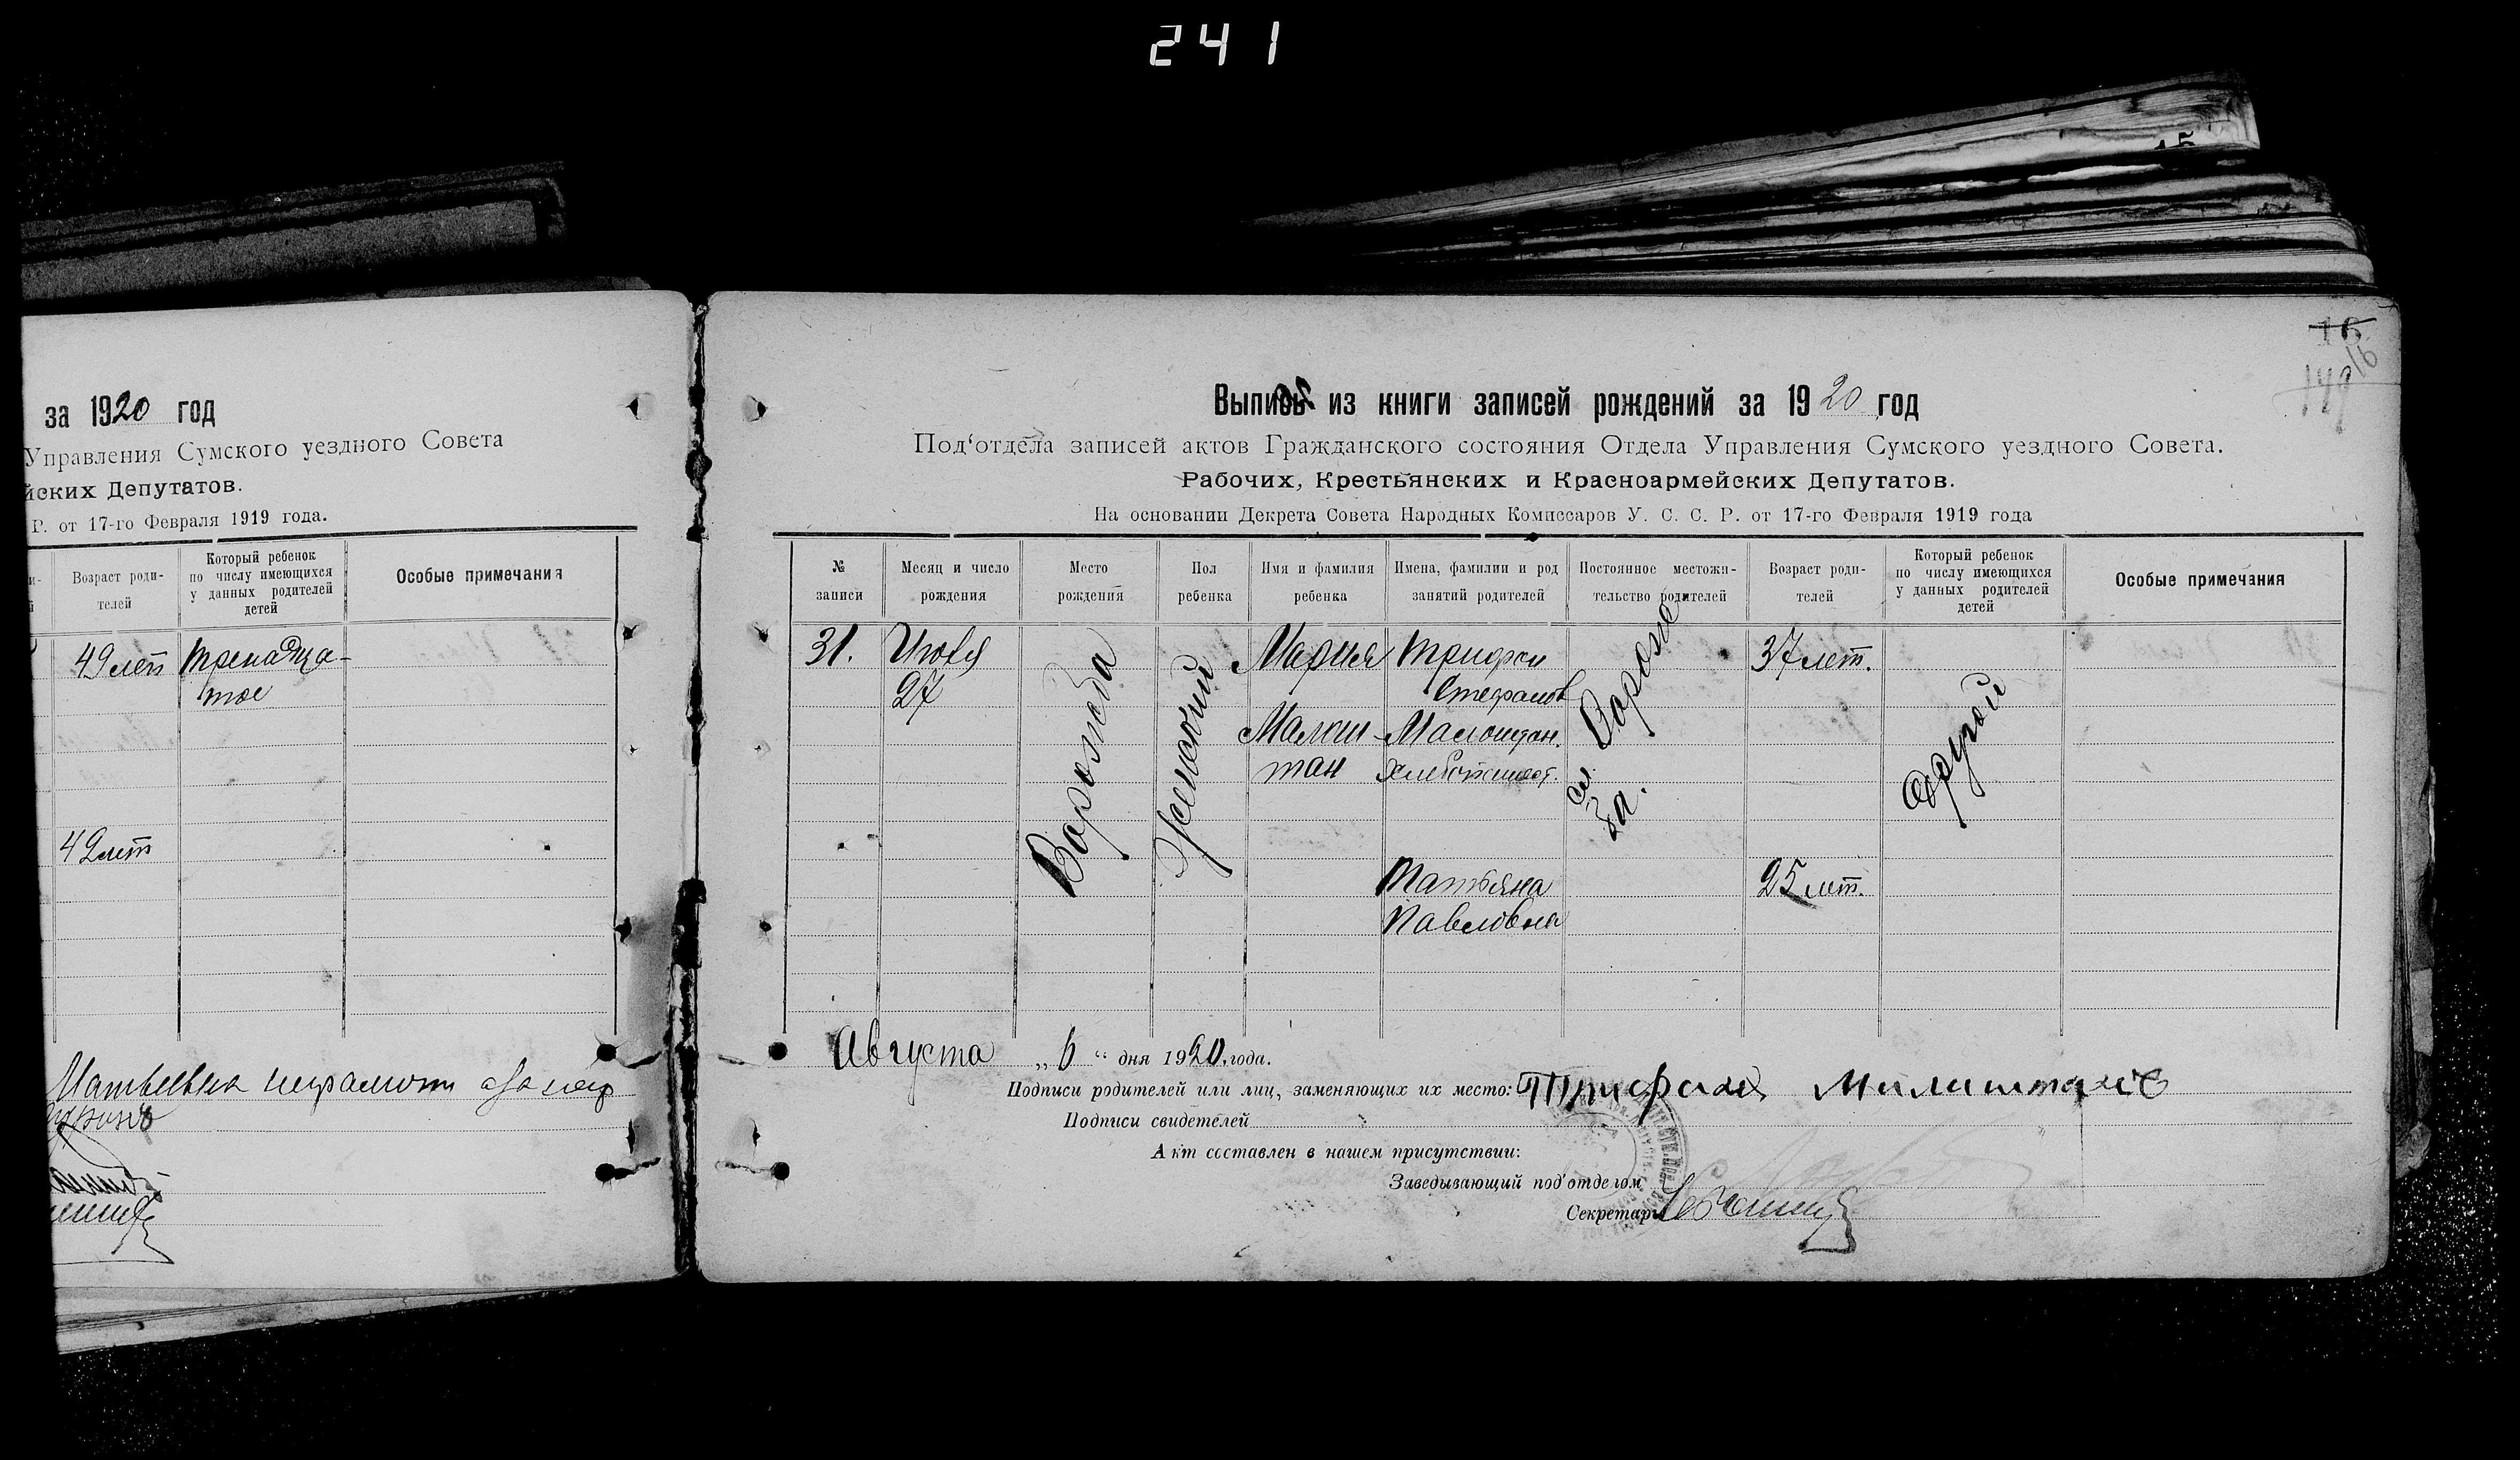 241
за 1920 год
Управления Сумского уездного Совета
йских Депутатов.
Р. от 17-го Февраля 1919 года.
Возраст роди-
телей
Который ребенок
по числу имеющихся
у данных родителей
детей
Особые примечания
49 лет
тринадца-
тое
42 лет
16
16
149
Выпись из книги записей рождений за 1920 год
Под‘отдела записей актов Гражданского состояния Отдела Управления Сумского уездного Совета.
Рабочих, Крестьянских и Красноармейских Депутатов.
На основании Декрета Совета Народных Комиссаров У. С. С. Р. от 17-го Февраля 1919 года
№
записи
Месяц и число
рождения
Место
рождения
Пол
ребенка
Имя и фамилия
ребенка
Имена, фамилии и род
занятий родителей
Постоянное местожи-
тельство родителей
Возраст роди-
телей
Который ребенок
по числу имеющихся
у данных родителей
детей
Особые примечания
31.
Июля
27
Ворожба
Женский
Мария
Трифон
Стефанов
сл. Ворож
ба.
37 лет.
другой
Татьяна
Павловна
25 лет.
Августа „6“ дня 1920 года.
Подписи родителей или лиц, заменяющих их место: Трифон
Подписи свидетелей
Акт составлен в нашем присутствии:
Заведывающий под‘отделом
Секретарь